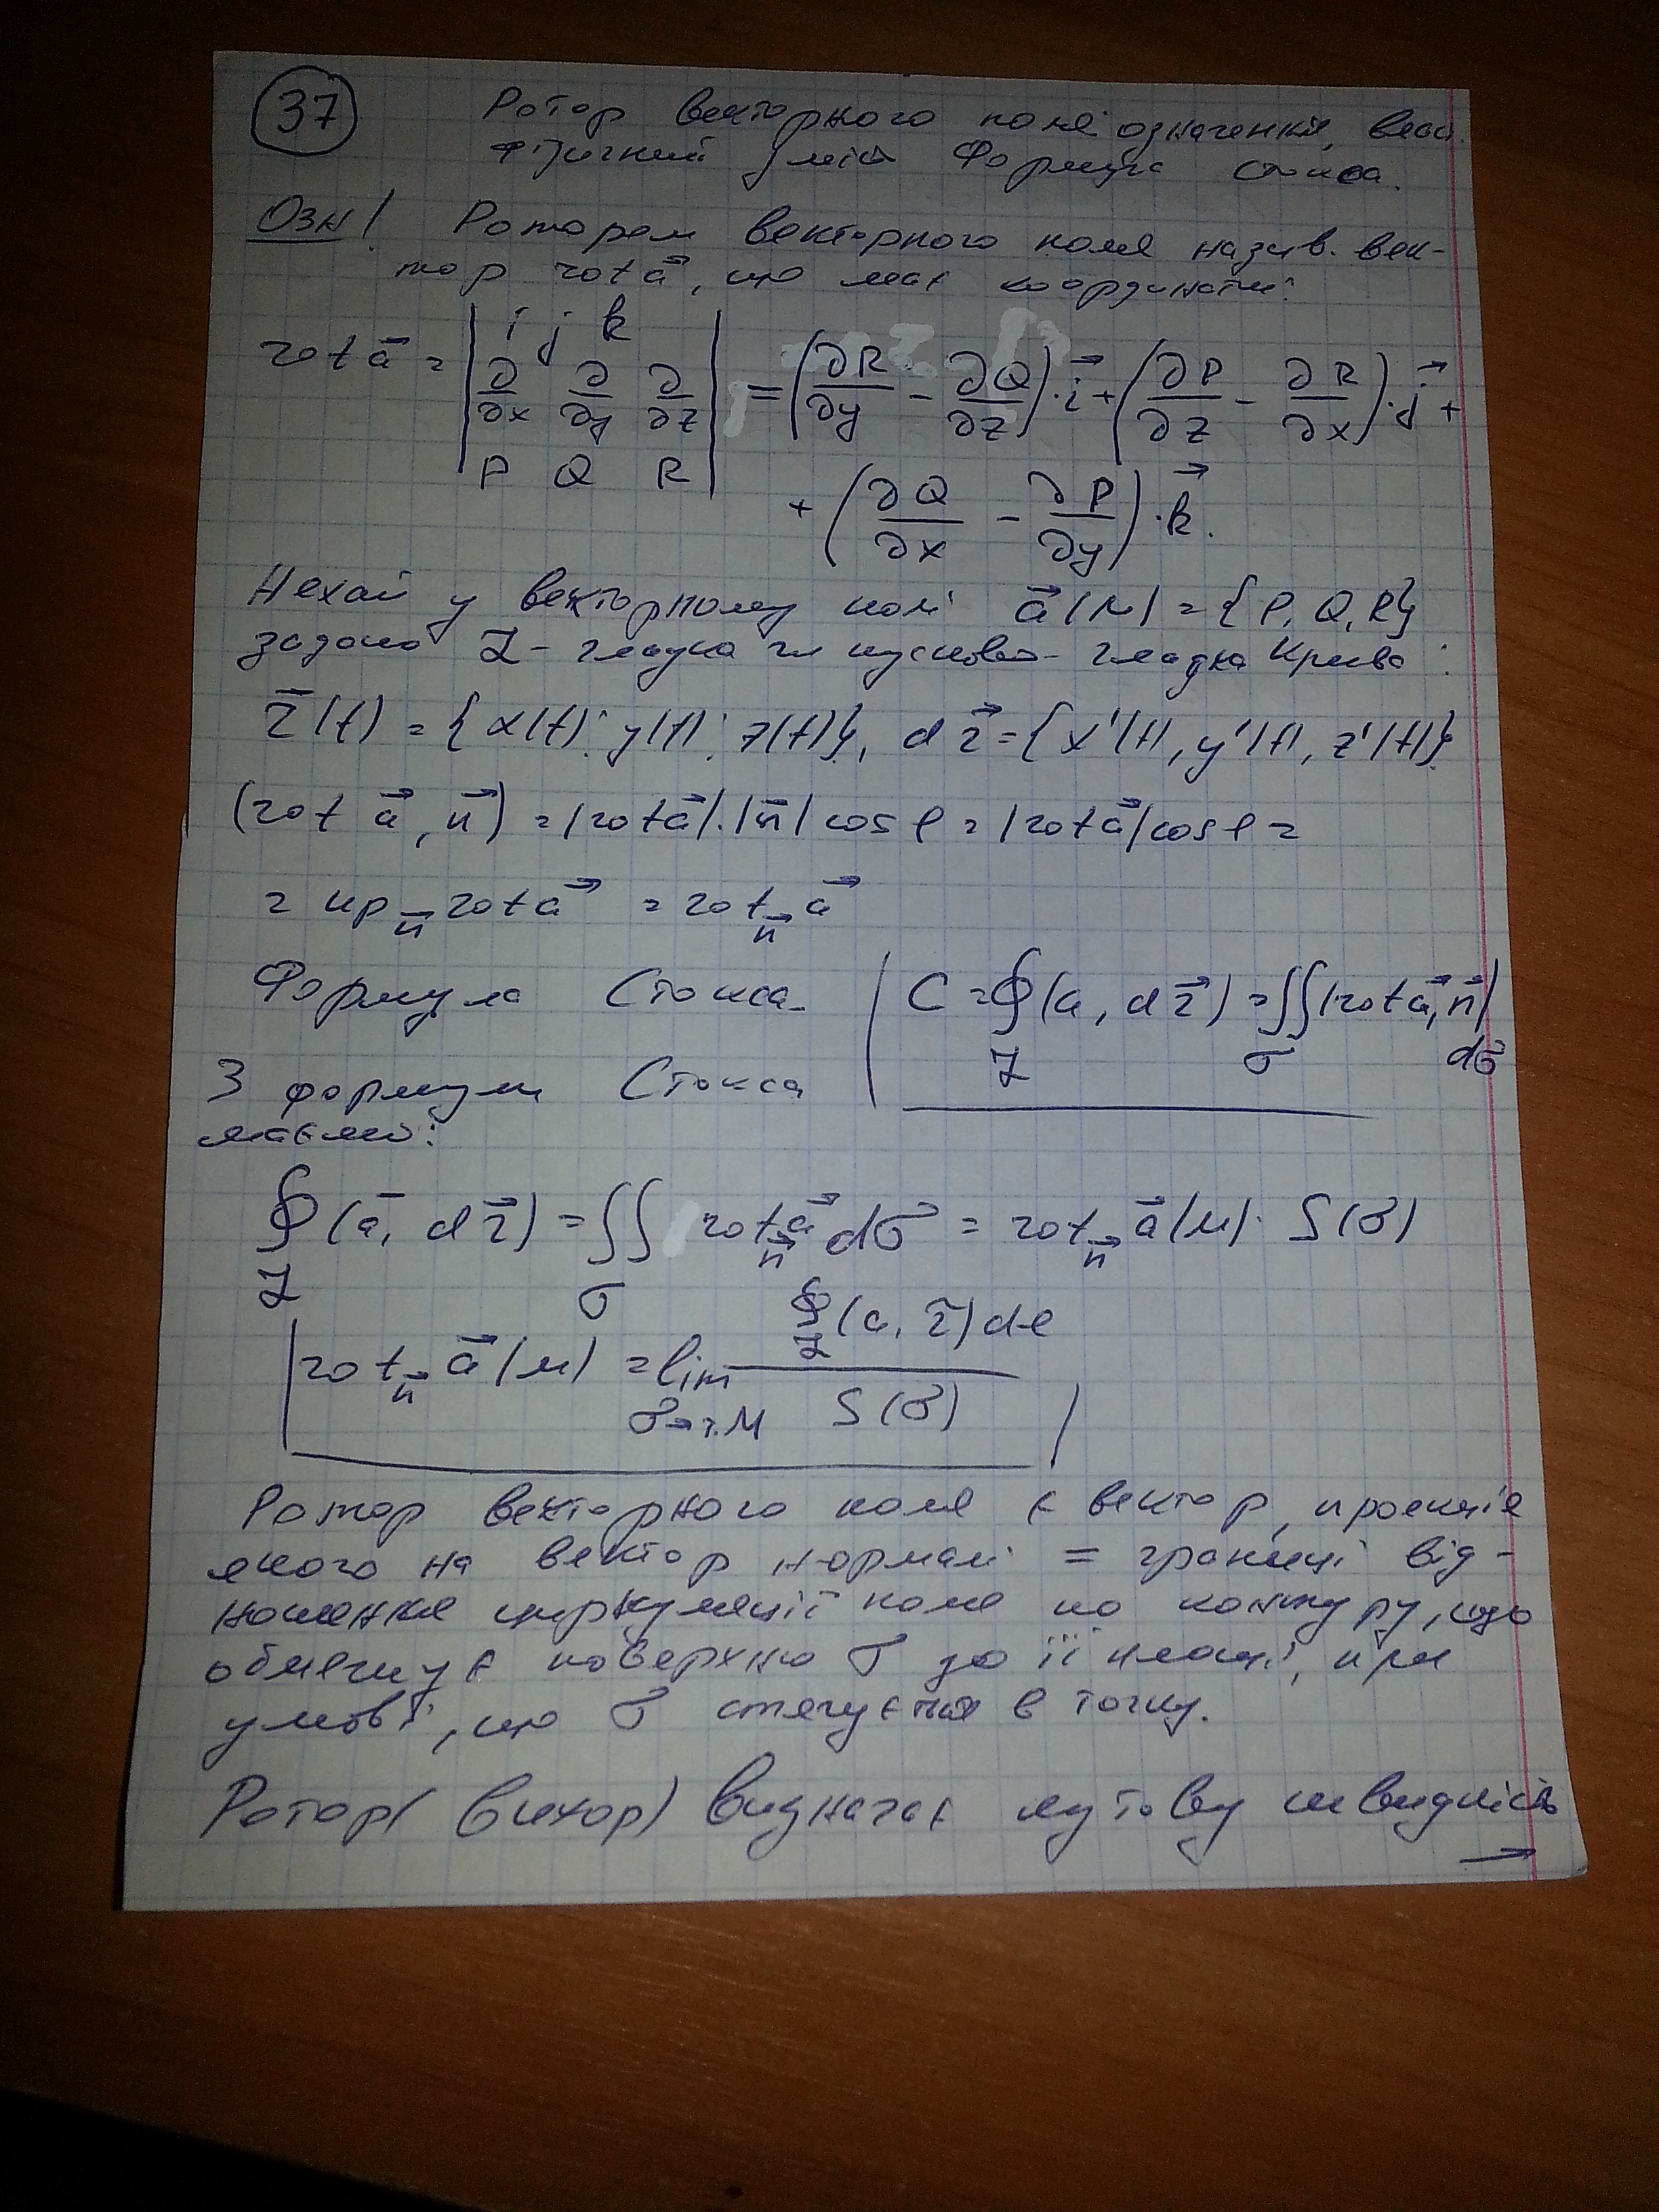 37 Ротор векторного поля: означення, влас.
фізичний зміст Формула стокса.
Озн! Ротором векторного поля назив. век-
тор rot a⃗, що має координати:
rot a⃗ = | i j k ; ∂/∂x ∂/∂y ∂/∂z ; P Q R | = (∂R/∂y - ∂Q/∂z)·i⃗ + (∂P/∂z - ∂R/∂x)·j⃗ +
+ (∂Q/∂x - ∂P/∂y)·k⃗.
Нехай у векторному полі a⃗(M) = {P, Q, R}
задано L - гладка чи кусково-гладка крива:
r̄(t) = {x(t); y(t); z(t)}, d r⃗ = {x'(t), y'(t), z'(t)}
(rot a⃗, n⃗) = |rot a⃗|·|n̄| cos φ = |rot a⃗| cos φ =
= пр_n⃗ rot a⃗ = rot_n⃗ a⃗
Формула Стокса. | C = ∮_L (a, d r⃗) = ∬_σ (rot a⃗, n⃗) dσ
З формули Стокса
маємо:
∮_L (ā, d r⃗) = ∬_σ rot_n⃗ a⃗ dσ = rot_n⃗ a⃗(M)· S(σ)
| rot_n⃗ a⃗(M) = lim_σ→т.M ∮_L (a, τ̄) dl / S(σ) |
Ротор векторного поля є вектор, проекція
якого на вектор нормалі = границі від-
ношення циркуляції поля по контуру, що
обмежує поверхню σ до її площі, при
умові, що σ стягується в точку.
Ротор (вихор) визначає кутову швидкість
→